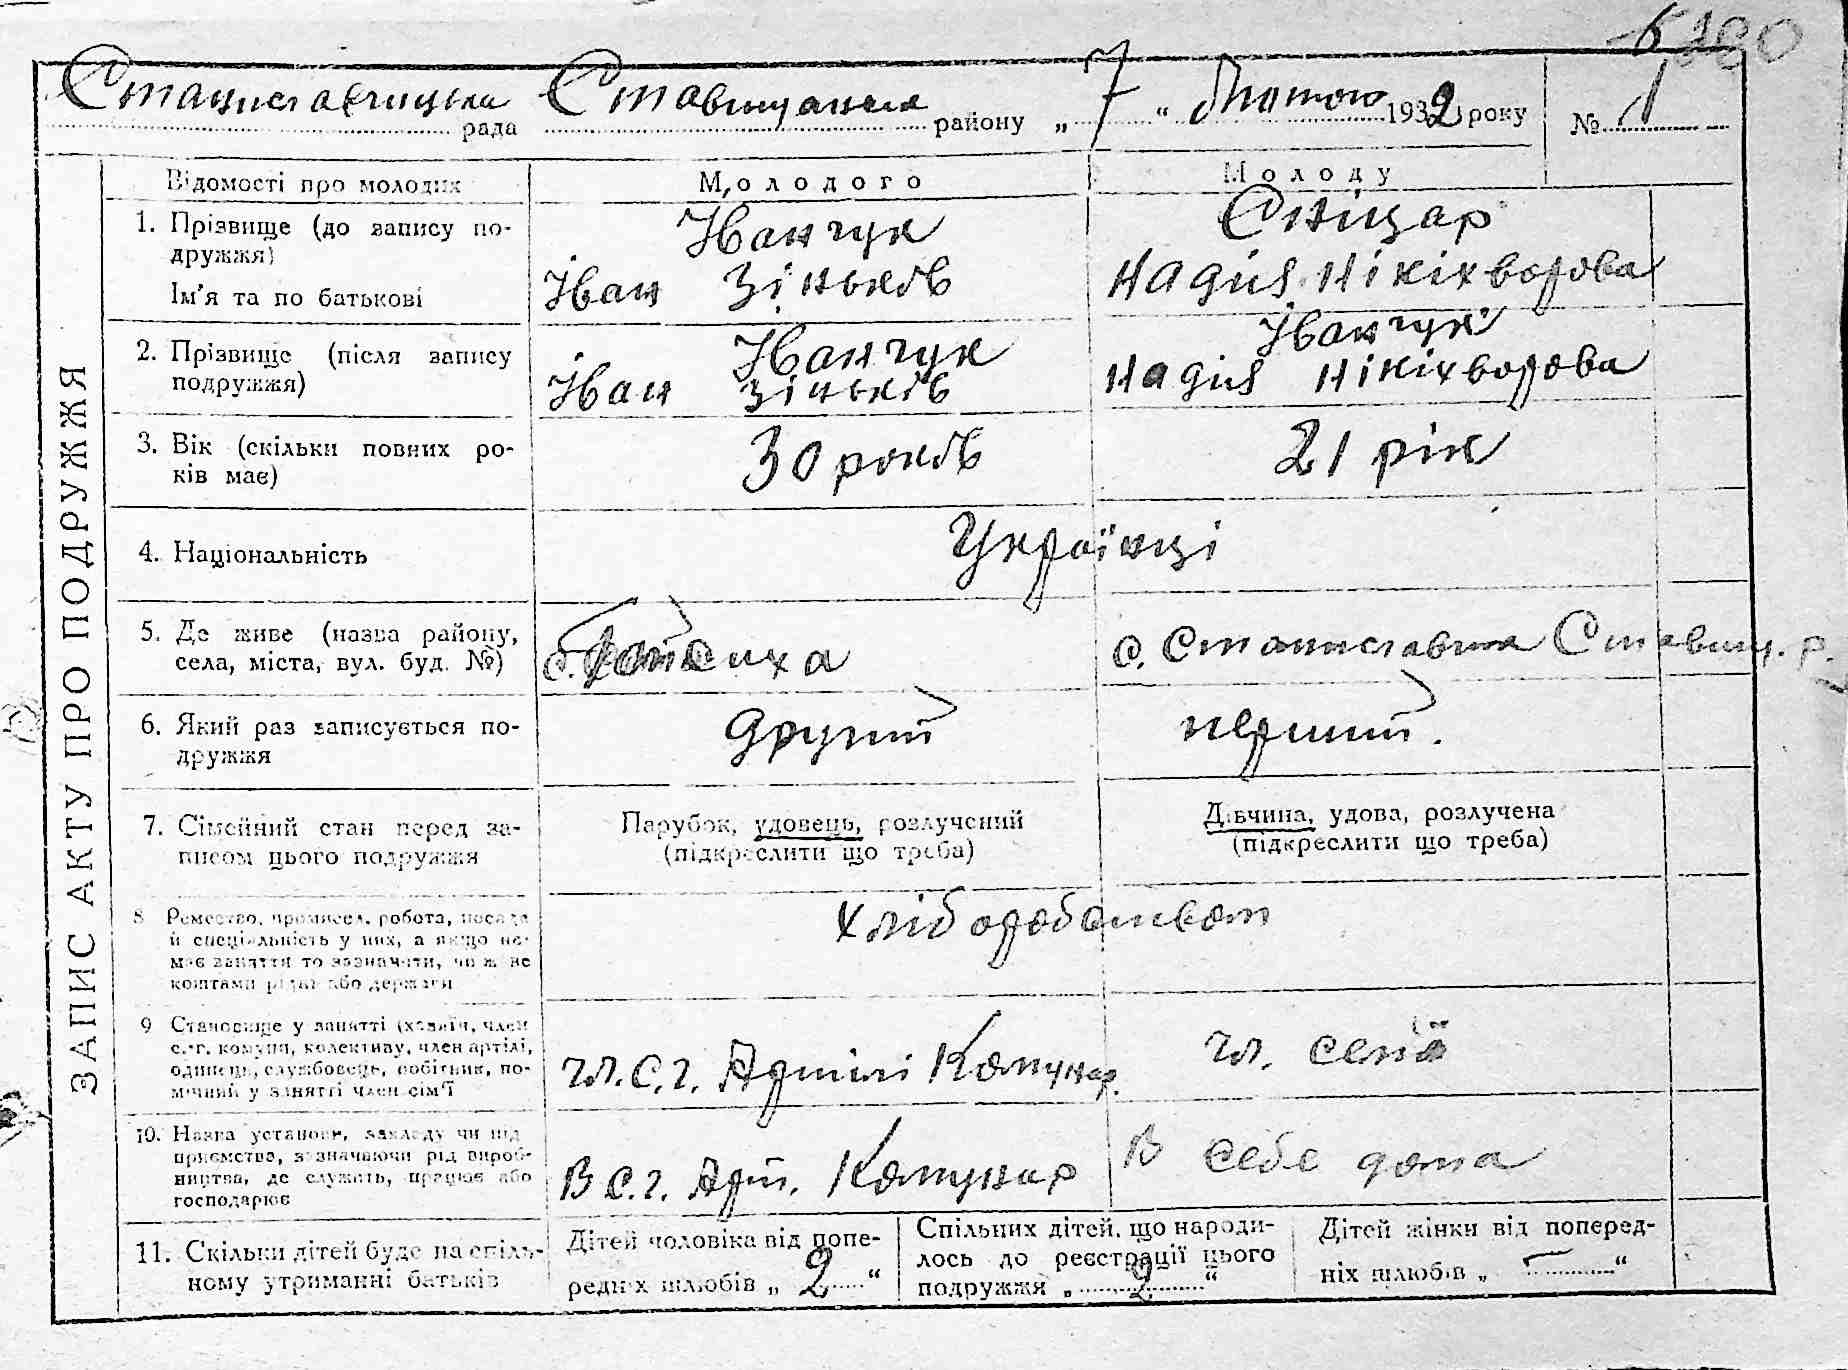 180
Станиславчицька рада Ставищанська району „ 7 “ Лютого 1932 року № 1
ЗАПИС АКТУ ПРО ПОДРУЖЖЯ
Відомості про молодих
Молодого
Молоду
1. Прізвище (до запису по-
дружжя)
Ім'я та по батькові
Іванчук
Іван Зіньків
Сніцар
Надія Нікіхворова
2. Прізвище (після запису
подружжя)
Іванчук
Іван Зіньків
Іванчук
Надія Нікіхворова
3. Вік (скільки повних ро-
ків має)
30 років
21 рік
4. Національність
Українці
5. Де живе (назва району,
села, міста, вул. буд. №)
с.
с. Станиславчик Ставищ. р.
6. Який раз записується по-
дружжя
другий
перший.
7. Сімейний стан перед за-
писом цього подружжя
Парубок, удовець, розлучений
(підкреслити що треба)
Дівчина, удова, розлучена
(підкреслити що треба)
8 Ремество, промисел, робота, посада
й спеціяльність у них, а якщо не-
має заняття то зазначити, чиїми
коштами або держави
хліборобством
9 Становище у занятті (хазяїн, член
с.-г. комуни, колективу, член артілі,
одинець, службовець, робітник, по-
мічний у занятті член сім'ї
чл. с. г. Артілі Комунар.
чл. сені
10. Назва установи, закладу чи під-
приємства, зазначаючи рід вироб-
ництва, де служить, працює або
господарює
В с. г. Арт. Комунар
В себе дома
11. Скільки дітей буде на спіль-
ному утриманні батьків
Дітей чоловіка від попе-
редніх шлюбів „ 2 “
Спільних дітей, що народи-
лось до реєстрації цього
подружжя „ 2 “
Дітей жінки від поперед-
ніх шлюбів „ — “